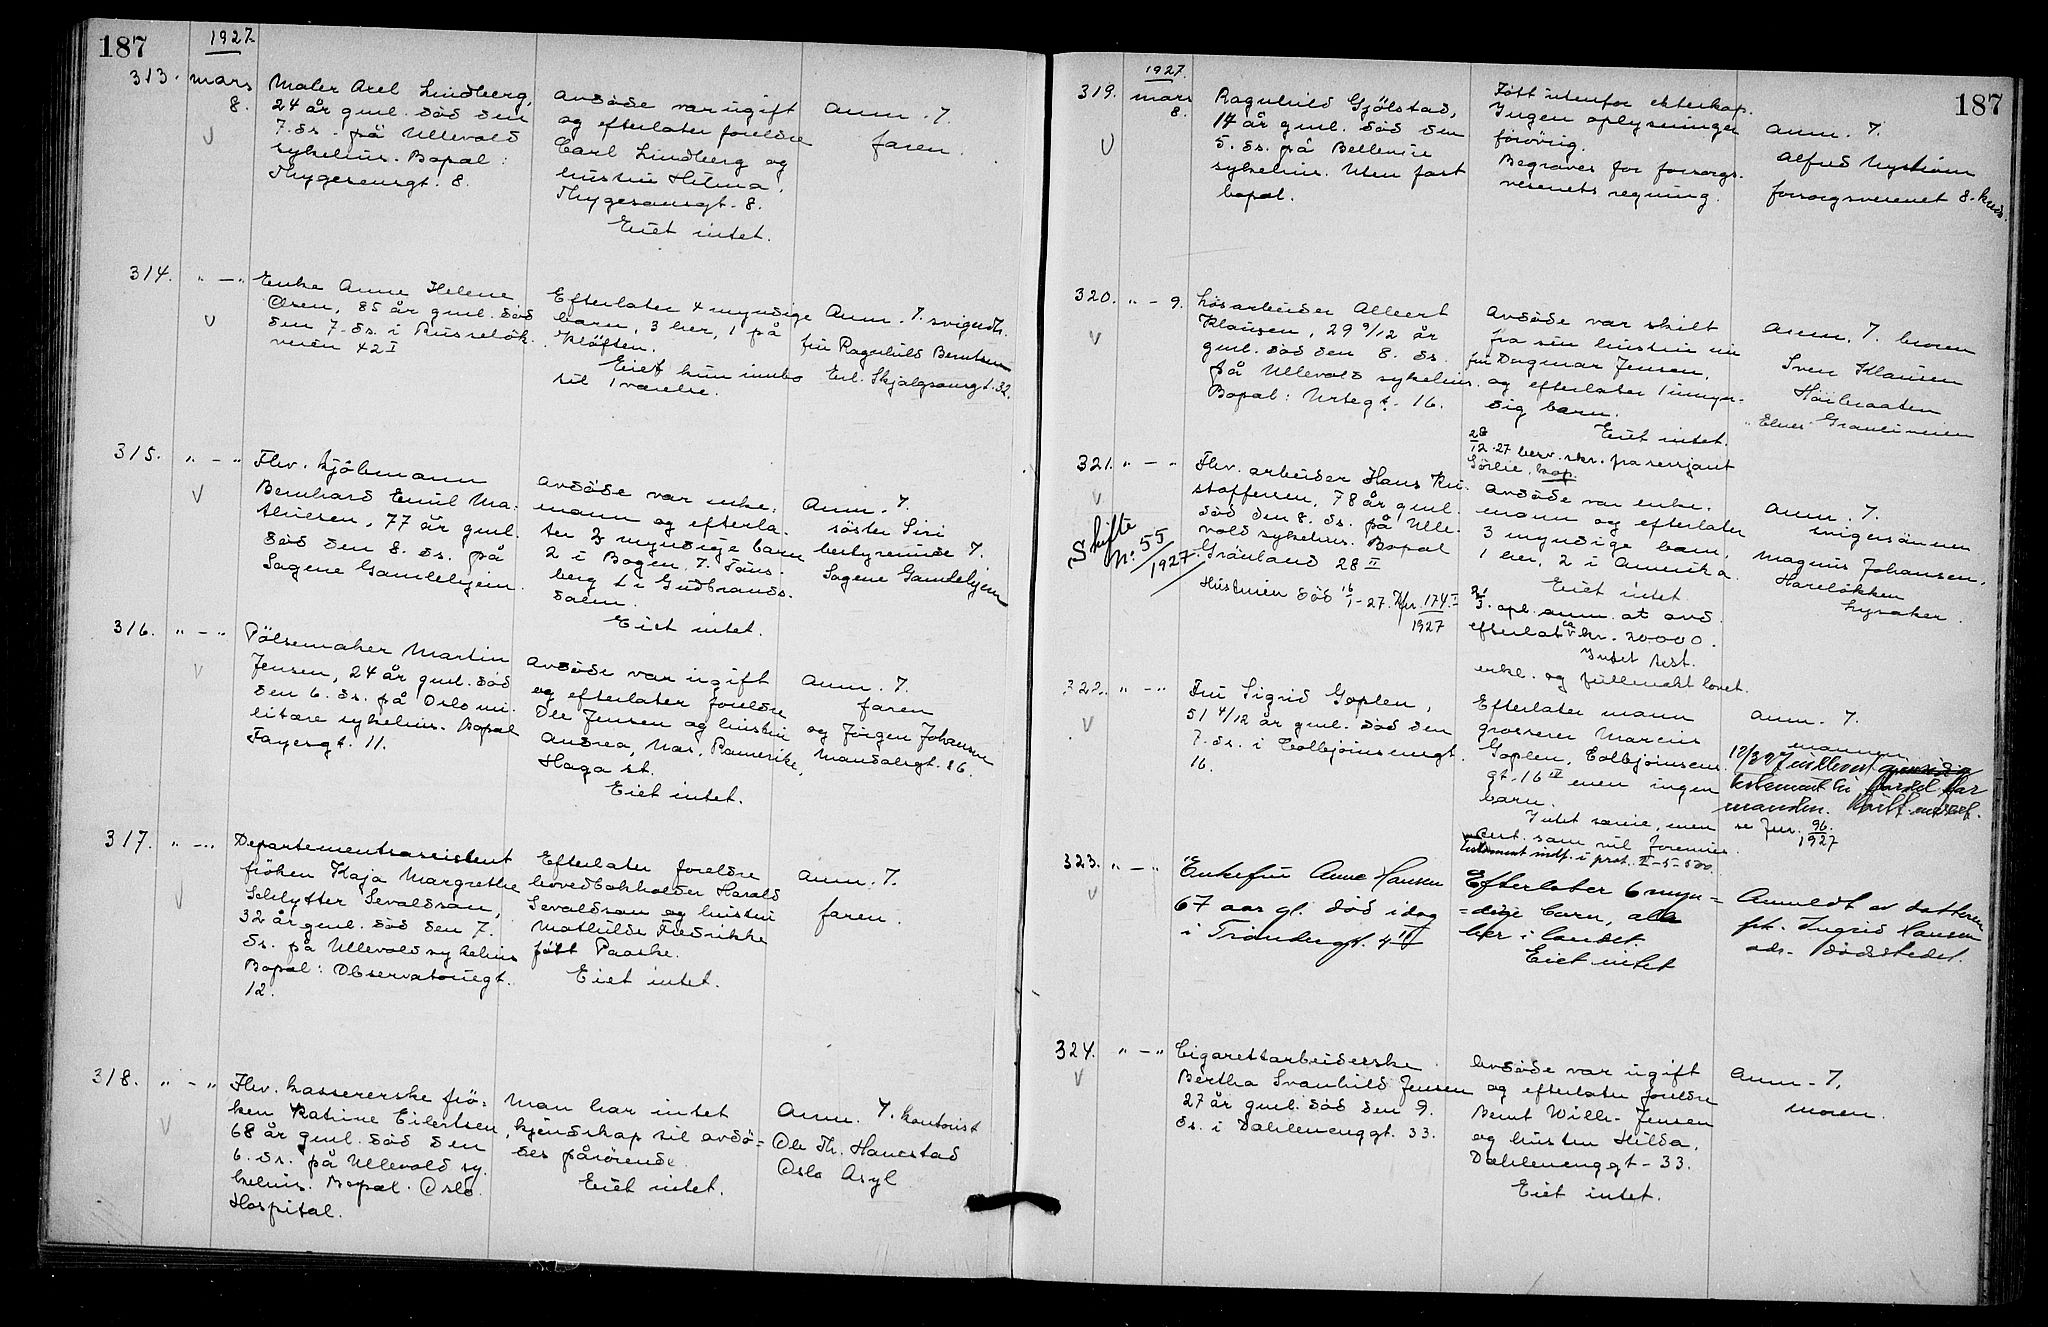 187
1927
313. mars 8.
Maler Axel Lindberg,
24 år gml. död den
7. ds. på Ullevold
sykehus. Bopæl:
Thygesensgt. 8.
Avdöde var ugift
og efterlater foreldre
Carl Lindberg og
hustru Hilma,
Thygesonsgt. 8.
Eiet intet.
Anm. 7.
faren.
314. " — "
Enke Anne Helene
Olsen, 85 år gml. död
den 7. ds. i Russelök.
veien 42 I
Efterlater 4 myndige
barn, 3 her, 1 på
Klöften.
Eiet kun innbo
til 1 værelse.
Anm. 7. svigerdt.
fru Ragnhild Berntsen
Erl. Skjalgsonsgt. 32.
315. " — "
Fhv. kjöbmann
Bernhard Emil Ma-
thiesen, 77 år gml.
död den 8. ds. på
Sagene Gamlehjem.
Avdöde var enke-
mann og efterla-
ter 3 myndige barn
2 i Bogen, 7. Töns-
berg 1 i Gudbrands-
dalen.
Eiet intet.
Anm. 7.
söster Siri
bestyrerinde 7.
Sagene Gamlehjem
316. " — "
Pölsemaker Martin
Jensen, 24 år gml. död
den 6. ds. på Oslo mi-
litære sykehus. Bopæl
Fayesgt. 11.
Avdöde var ugift
og efterlater foreldre
Ole Jensen og hustru
Andrea, Nes, Romerike,
Haga st.
Eiet intet.
Anm. 7.
faren
og Jörgen Johansen
Mandalsgt. 16.
317. " — "
Departementsassistent
fröken Kaja Margrethe
Schlytter Sevaldson,
32 år gml. död den 7.
ds. på Ullevold sykehus
Bopæl: Observatoriegt.
12.
Efterlater foreldre
hovedbokholder Harald
Sevaldson og hustru
Mathilde Fredrikke
född Paaske.
Eiet intet.
Anm. 7.
faren.
318. " — "
Fhv. kassererske frö-
ken Katrine Eilertsen,
68 år gml. död den
6. ds. på Ullevold sy-
kehus. Bopæl. Oslo
Hospital.
Man har intet
kjendskap til avdö-
des pårörende.
Eiet intet.
Anm. 7. kontorist
Ole Th. Hanestad
Oslo Asyl
187
1927.
319. mars 8.
Ragnhild Gjölstad,
14 år gml. död den
5. ds. på Bellevue
sykehus. Uten fast
bopæl.
Född utenfor ekteskap.
Ingen oplysninger
forövrig.
Begraves for forsorgs-
vesenets regning.
Anm. 7.
Alfred Nyström
forsorgsvesenet 8. kreds.
320. " — 9.
Lösarbeider Albert
Klausen, 29 9/12 år
gml. död den 8. ds.
på Ullevold sykehus.
Bopæl: Urtegt. 16.
Avdöde var skilt
fra sin hustru nu
fru Dagmar Jensen,
og efterlater 1 umyn-
dig barn.
Eiet intet.
28/12-27 berv. skr. fra sersjant
Sörlie, kop
Anm. 7. broren
Sven Klausen
Höibraaten
321. " — "
Skifte
Nº 55/1927.
Fhv. arbeider Hans Kri-
stoffersen, 78 år gml.
död den 8. ds. på Ulle-
vold sykehus. Bopæl
Grönland 28 II
Hustruen död 16/1-27. Jfr 174 I
1927
Avdöde var enke-
mann og efterlater
3 myndige barn,
1 her, 2 i Amerika.
Eiet intet.
21/3. opl. anm. at avd.
efterlot ca kr. 20000.
Intet test.
erkl. og fullmakt lovet.
Anm. 7.
svigersönnen
Magnus Johansen,
Hareløkken
Lysaker.
322. " — "
Fru Sigrid Goplen,
51 4/12 år gml. död den
7. ds. i Colbjörnsensgt.
16.
Efterlater mann
grosserer Marcus
Goplen, Colbjörnsens
gt. 16 II men ingen
barn.
Intet særeie, men
test. som vil fremvises.
Testament indf. i prot. II-5-500.
Anm. 7.
mannen
12/3 27 innlevert
testament til fordel for
manden.
se Jnr. 96/1927
323. " — "
Enkefru Anne Hansen
67 aar gl. död idag
i Trondergt. 4 II
Efterlater 6 myn=
=dige barn, alle
her i landet.
Eiet intet
Anmeldt av datteren
frk. Ingrid Hansen
adr. dödsstedet.
324. " — "
Cigarettarbeiderske
Bertha Svanhild Jensen
27 år gml. död den 9.
ds. i Dahlenenggt. 33.
Avdöde var ugift
og efterlater foreldre
Bernt Wilh. Jensen
og hustru Hilda,
Dahlenenggt-33.
Eiet intet.
Anm. 7.
moren.